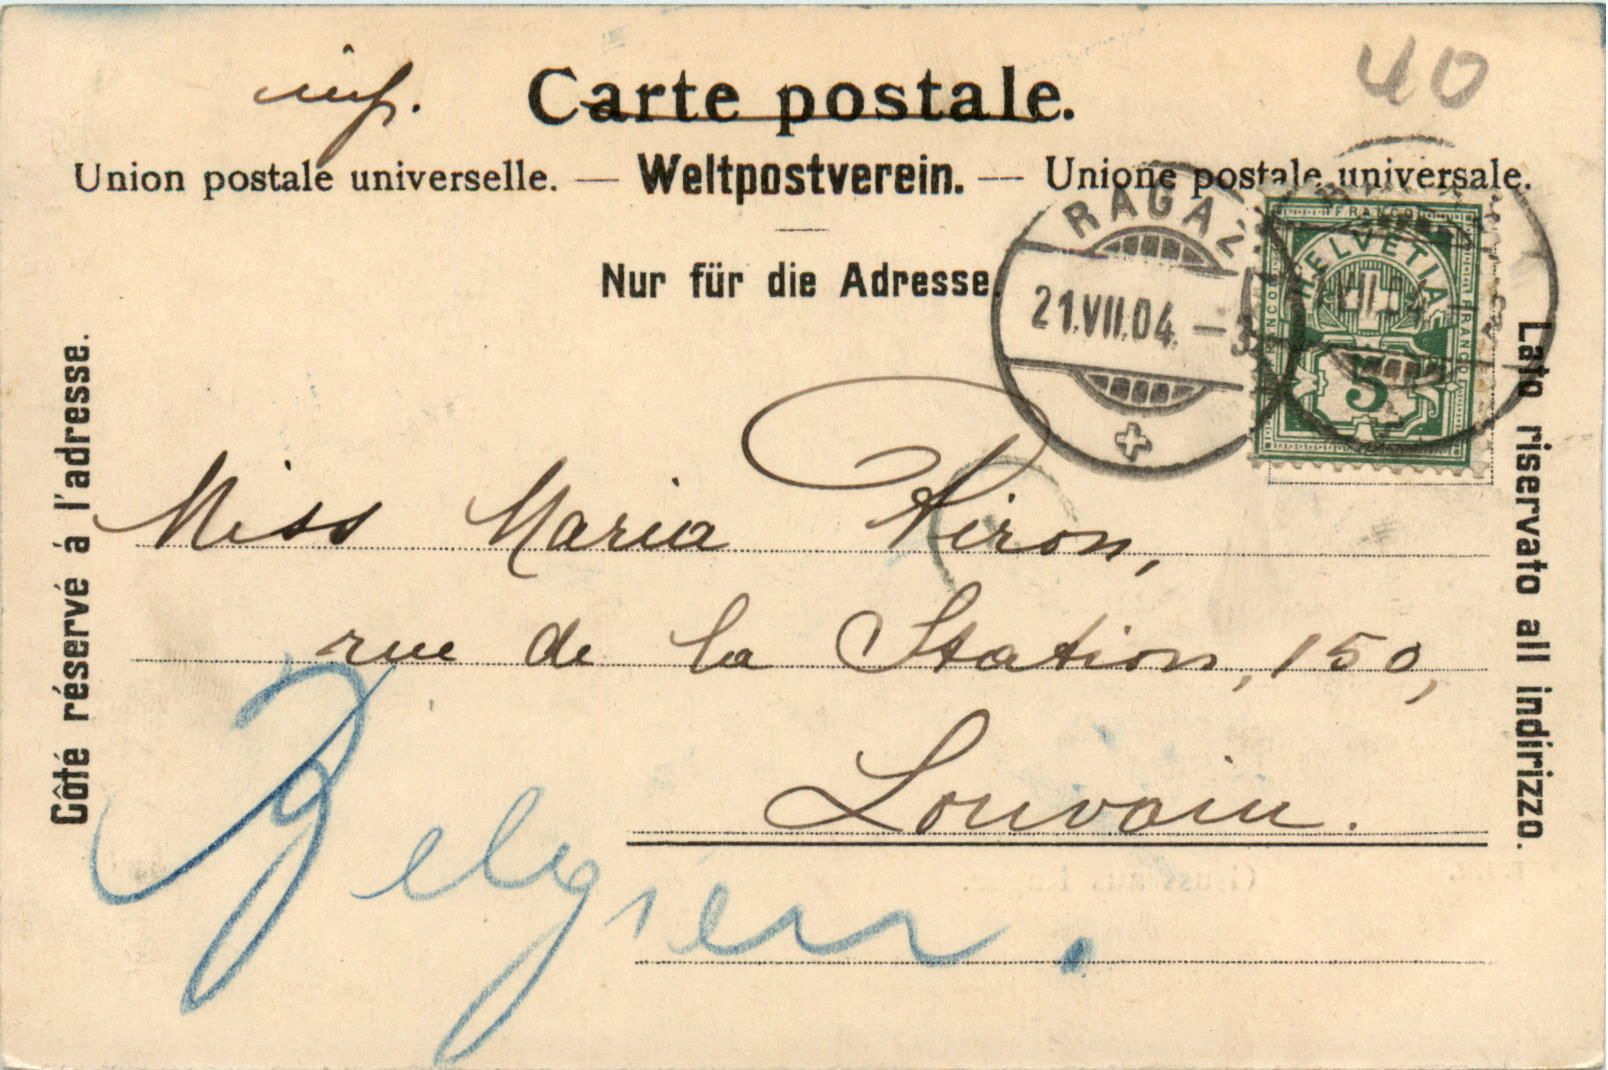 40
Carte postale.
Union postale universelle. — Weltpostverein. — Unione postale universale.
Nur für die Adresse.
RAGAZ
21.VII.04. –3
FRANCO
HELVETIA
FRANCO
FRANCO
5
VII.04
Côté réservé á l'adresse.
Lato riservato all indirizzo.
Miss Maria Piron,
rue de la Station, 150,
Louvain.
Belgien.